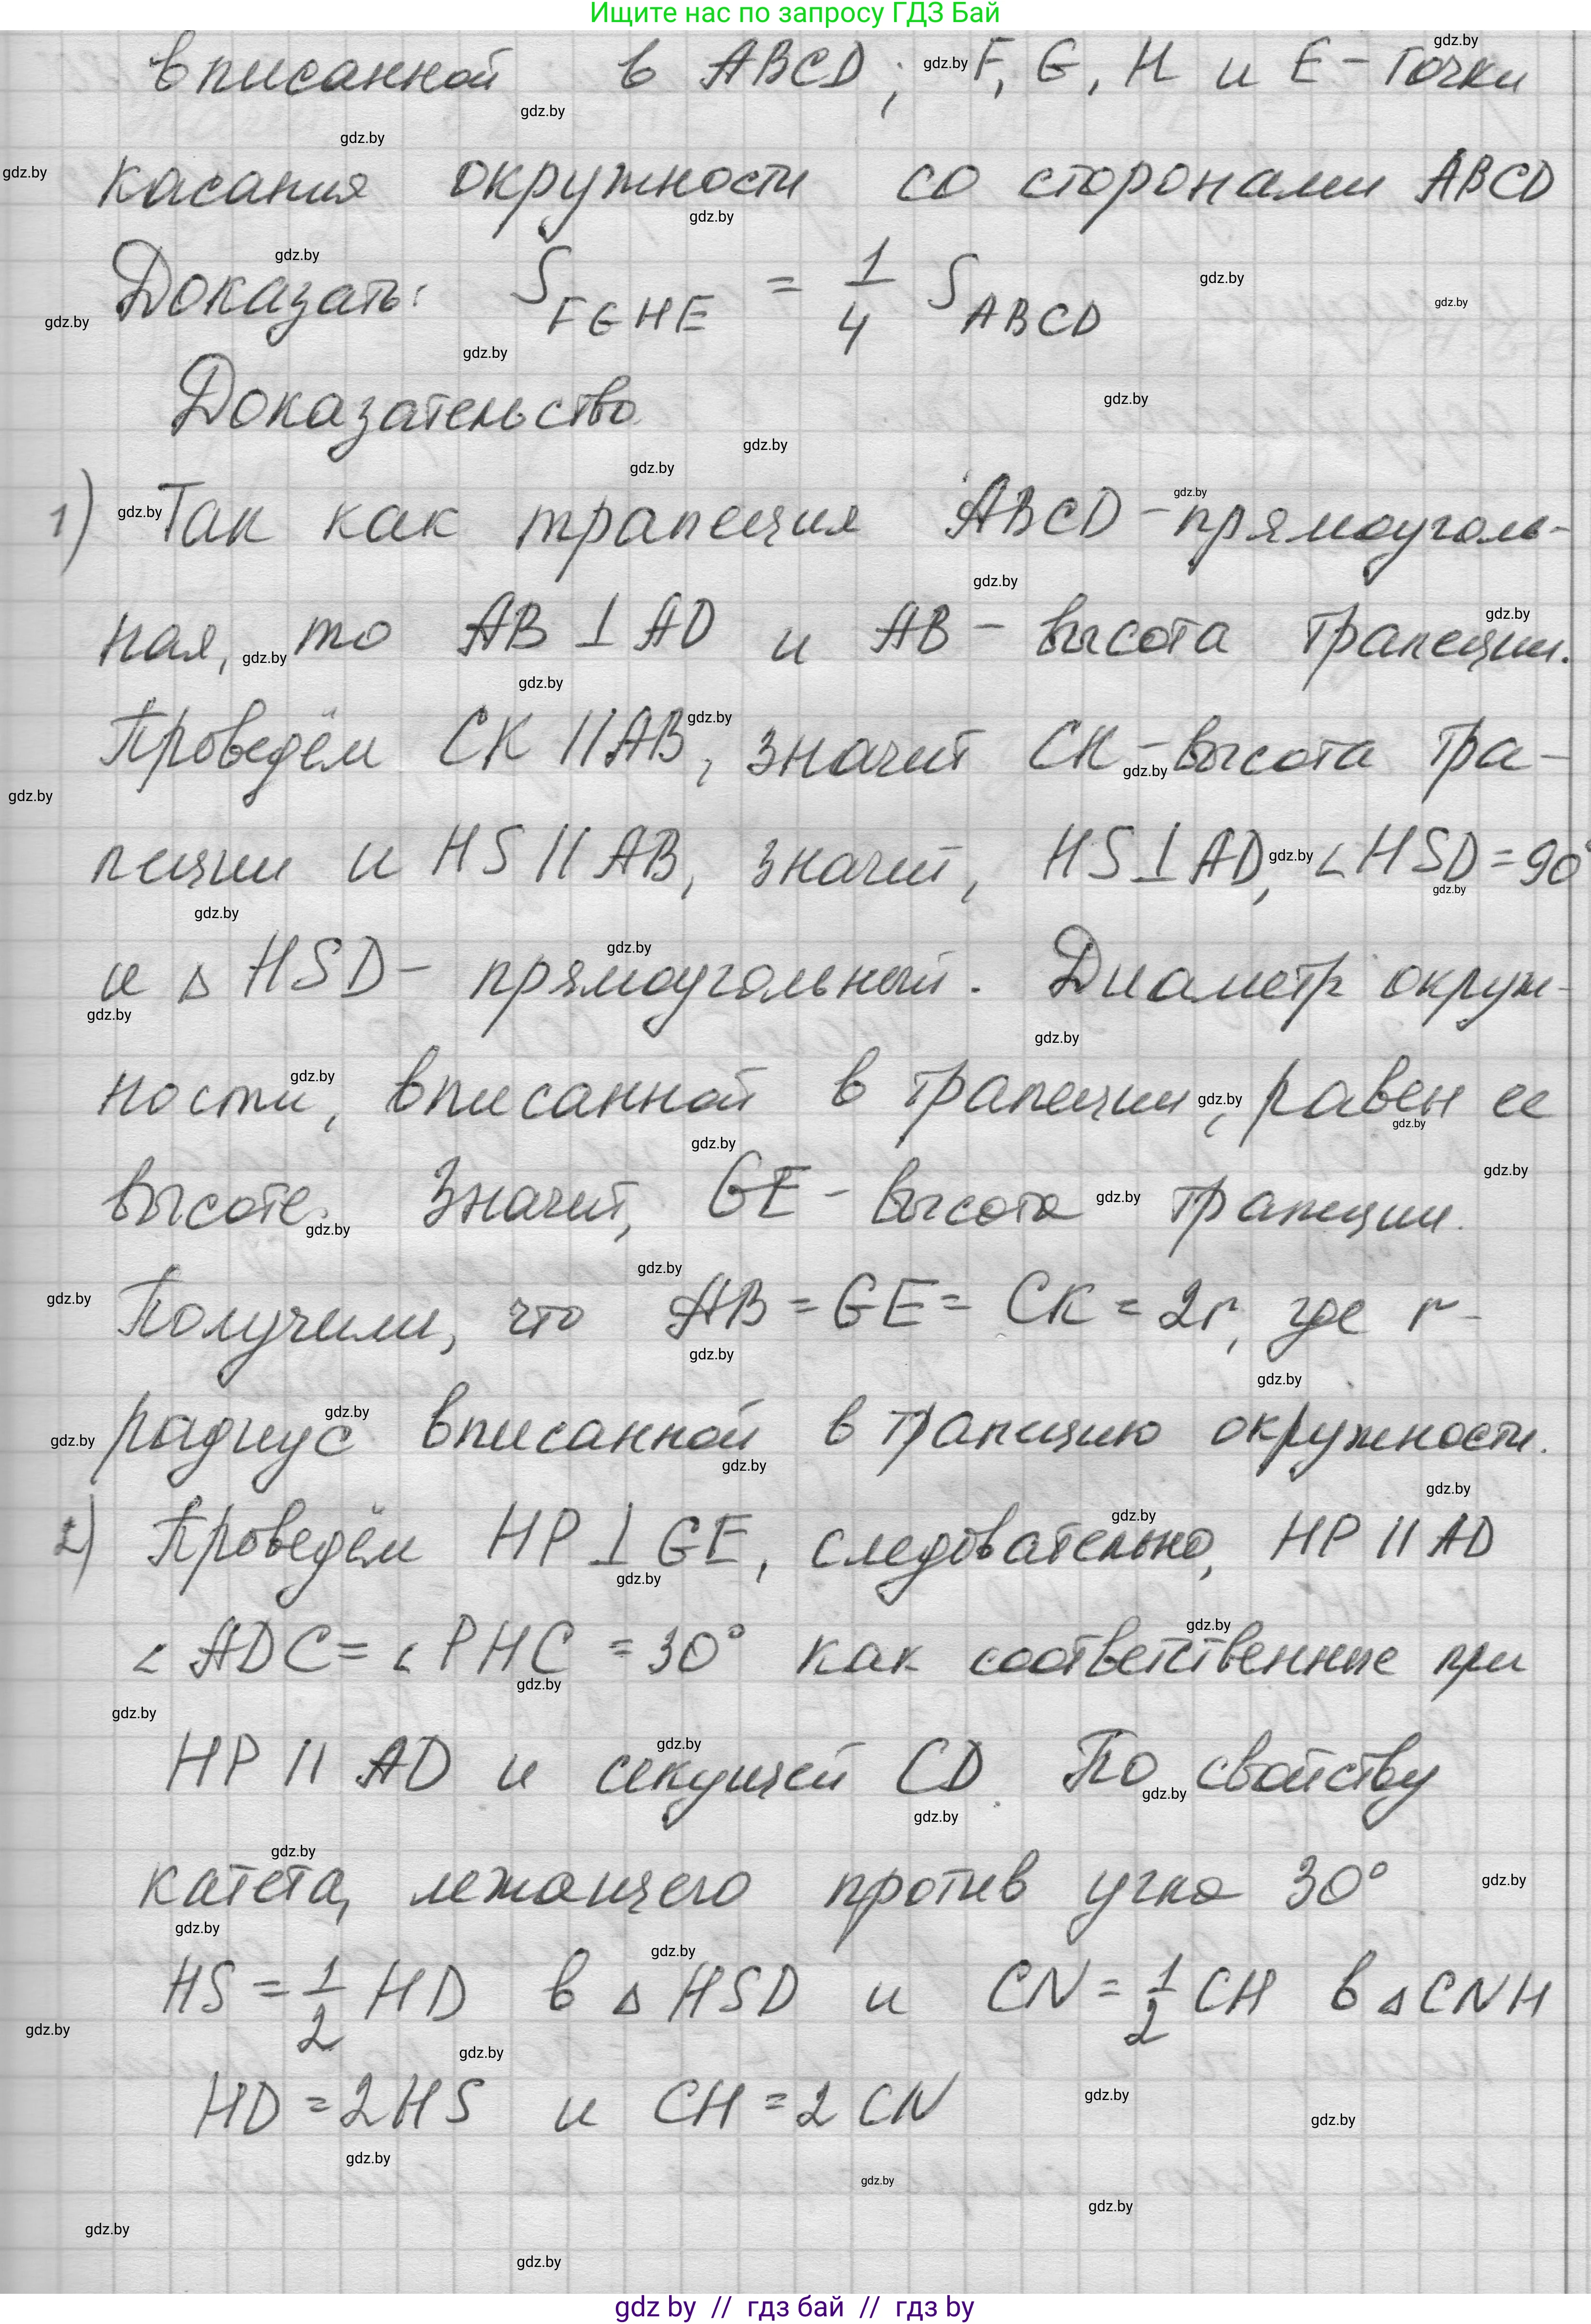 Ищите нас по запросу ГДЗ Бай
вписанной в ABCD; F, G, H и E - точки
касания окружности со сторонами ABCD
Доказать: S_FGHE = 1/4 S_ABCD
Доказательство.
1) Так как трапеция ABCD - прямоуголь-
ная, то AB ⊥ AD и AB - высота трапеции.
Проведём CK || AB, значит CK - высота тра-
пеции и HS || AB, значит, HS ⊥ AD, ∠HSD = 90°
и △HSD - прямоугольный. Диаметр окруж-
ности, вписанной в трапеции, равен ее
высоте. Значит, GE - высота трапеции.
Получили, что AB = GE = CK = 2r, где r -
радиус вписанной в трапецию окружности.
2) Проведём HP ⊥ GE, следовательно, HP || AD
∠ADC = ∠PHC = 30° как соответственные при
HP || AD и секущей CD. По свойству
катета, лежащего против угла 30°
HS = 1/2 HD в △HSD и CN = 1/2 CH в △CNH
HD = 2HS и CH = 2CN
gdz by // гдз бай // гдз by